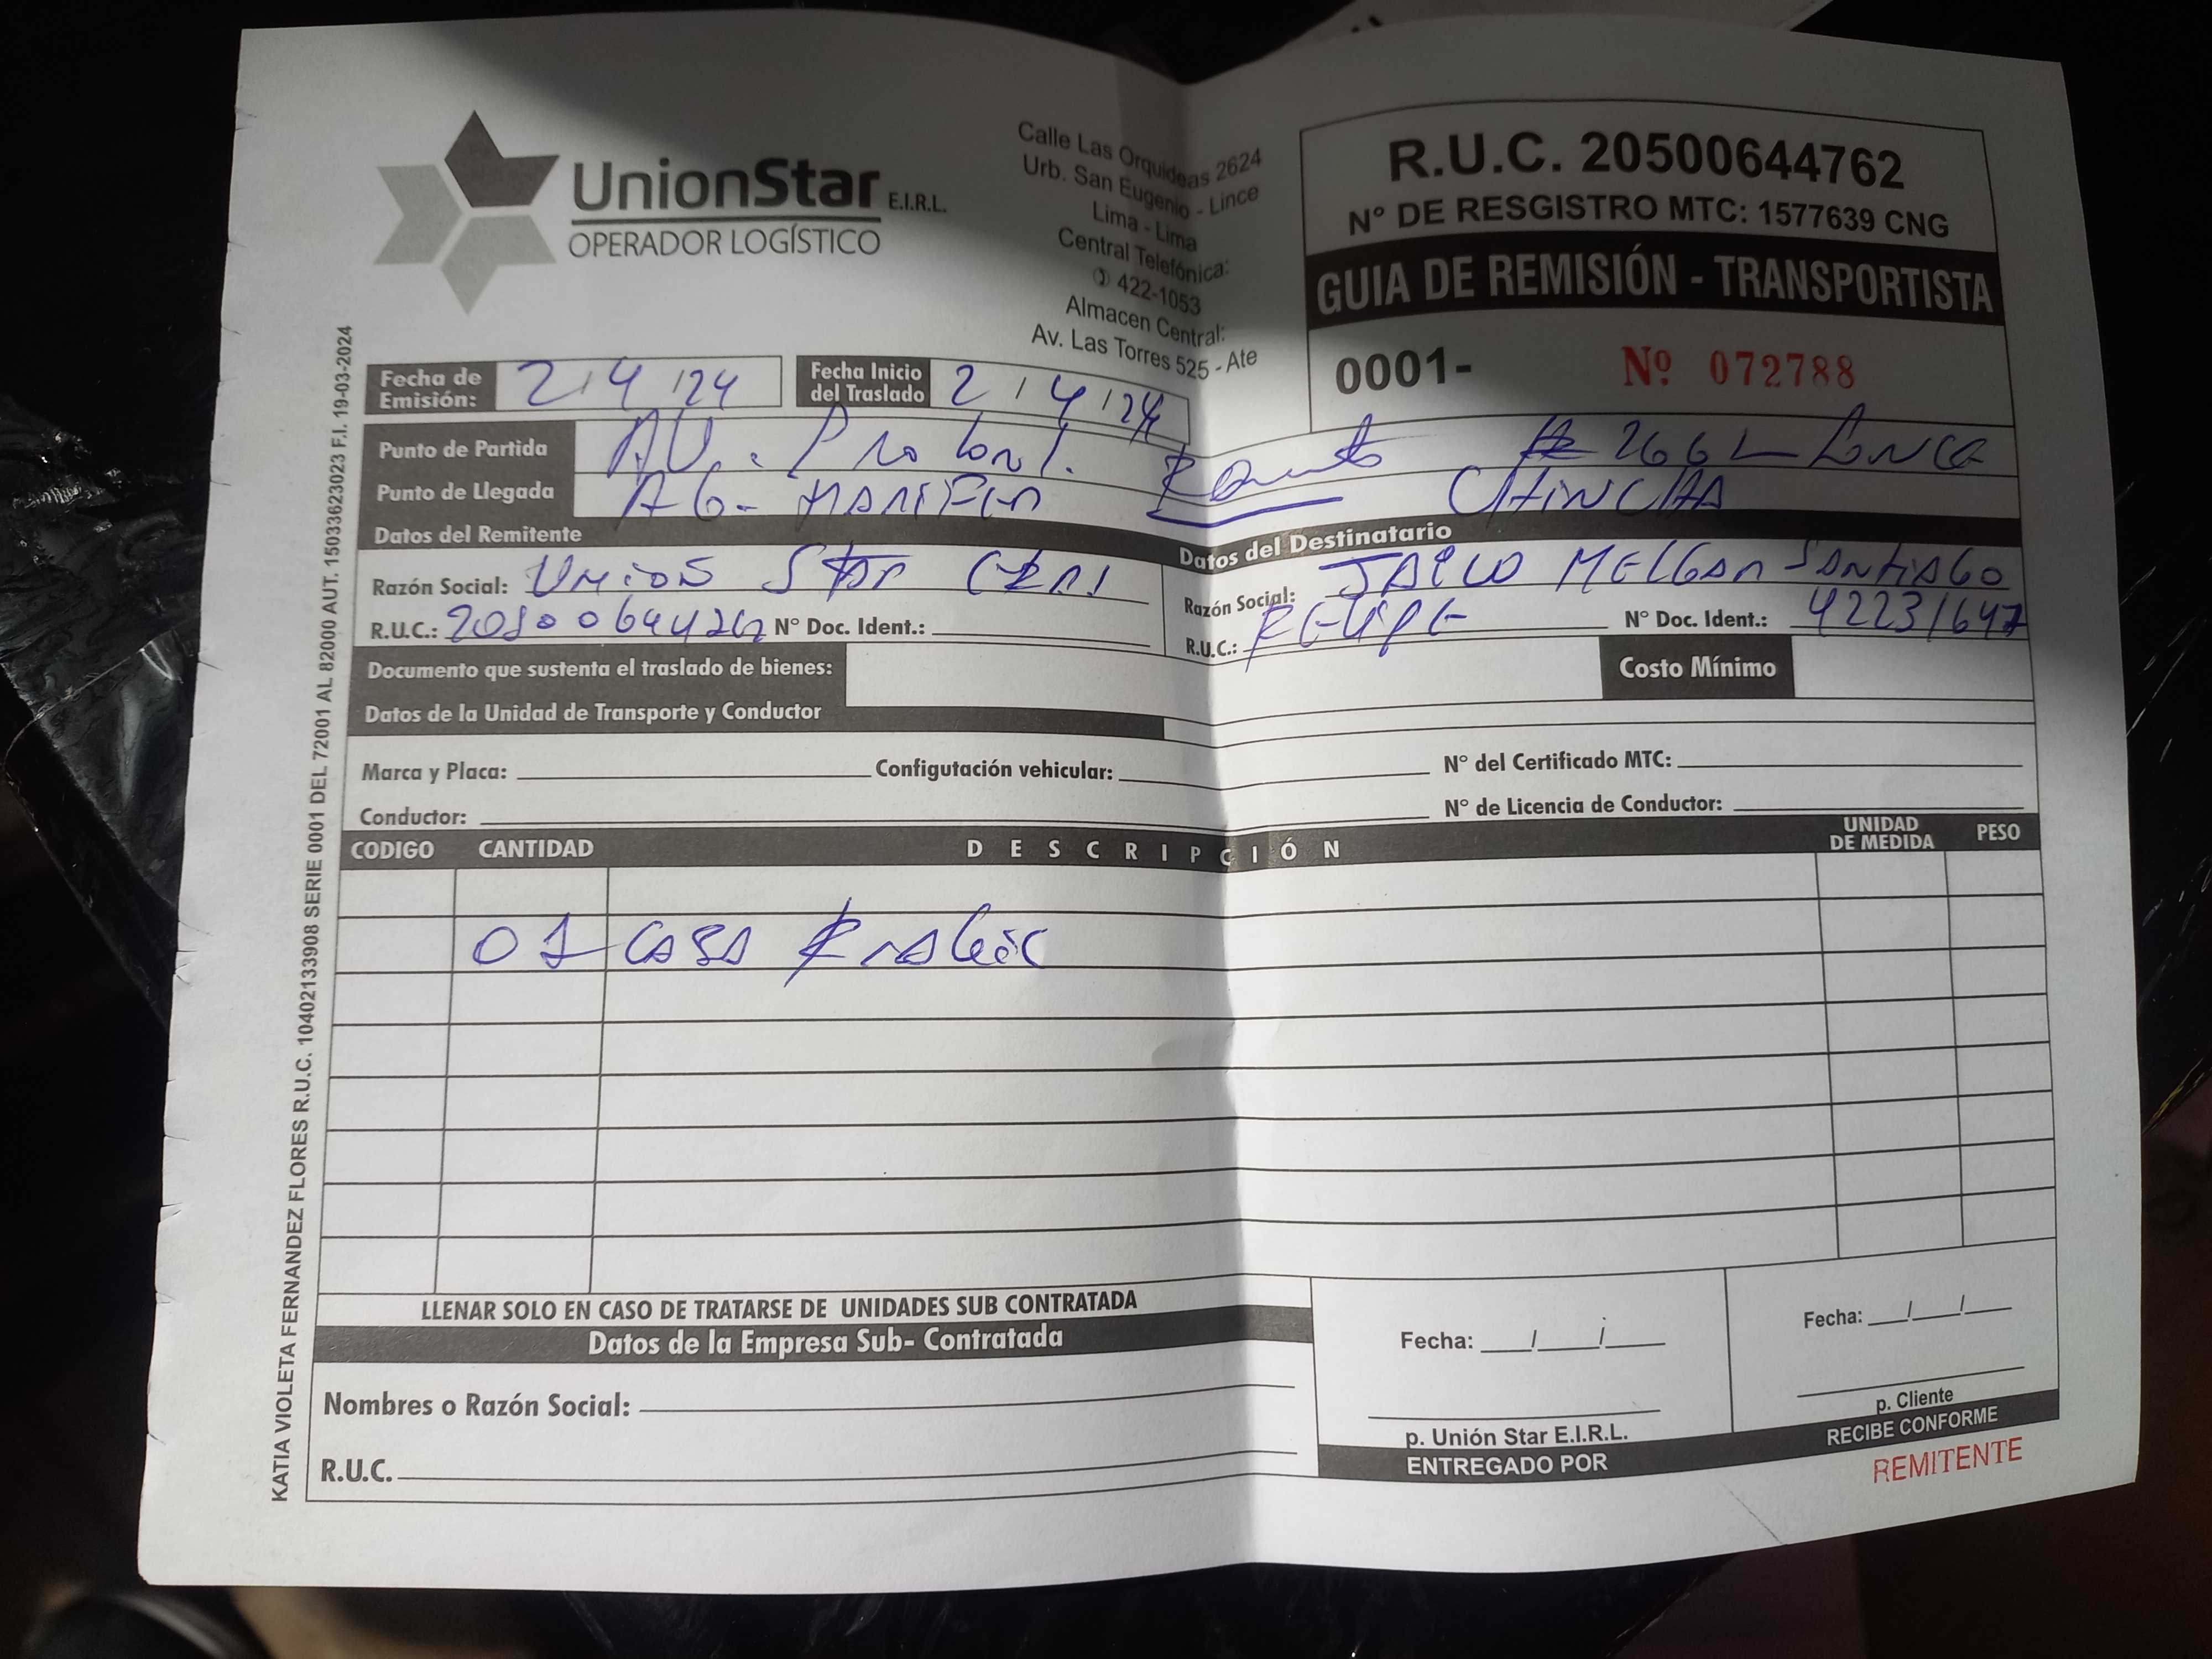 UnionStar E.I.R.L.
OPERADOR LOGÍSTICO
Calle Las Orquideas 2624
Urb. San Eugenio - Lince
Lima - Lima
Central Telefónica:
422-1053
Almacen Central:
Av. Las Torres 525 - Ate
R.U.C. 20500644762
N° DE RESGISTRO MTC: 1577639 CNG
GUIA DE REMISIÓN - TRANSPORTISTA
0001- Nº 072788
Fecha de Emisión: 2/4/24
Fecha Inicio del Traslado 2/4/24
Punto de Partida AV.
Punto de Llegada AG- CHINCHA
Datos del Remitente
Razón Social: UNION STAR
R.U.C.: N° Doc. Ident.:
Datos del Destinatario
Razón Social: MELGAR SANTIAGO
R.U.C.: N° Doc. Ident.: 42231647
Documento que sustenta el traslado de bienes:
Costo Mínimo
Datos de la Unidad de Transporte y Conductor
Marca y Placa: Configutación vehicular: N° del Certificado MTC:
Conductor: N° de Licencia de Conductor:
CODIGO CANTIDAD DESCRIPCIÓN UNIDAD DE MEDIDA PESO
01
LLENAR SOLO EN CASO DE TRATARSE DE UNIDADES SUB CONTRATADA
Datos de la Empresa Sub- Contratada
Nombres o Razón Social:
R.U.C.
Fecha: / /
p. Unión Star E.I.R.L.
ENTREGADO POR
Fecha: / /
p. Cliente
RECIBE CONFORME
REMITENTE
KATIA VIOLETA FERNANDEZ FLORES R.U.C. 10402133908 SERIE 0001 DEL 72001 AL 82000 AUT. 1503362302﻿3 F.I. 19-03-2024